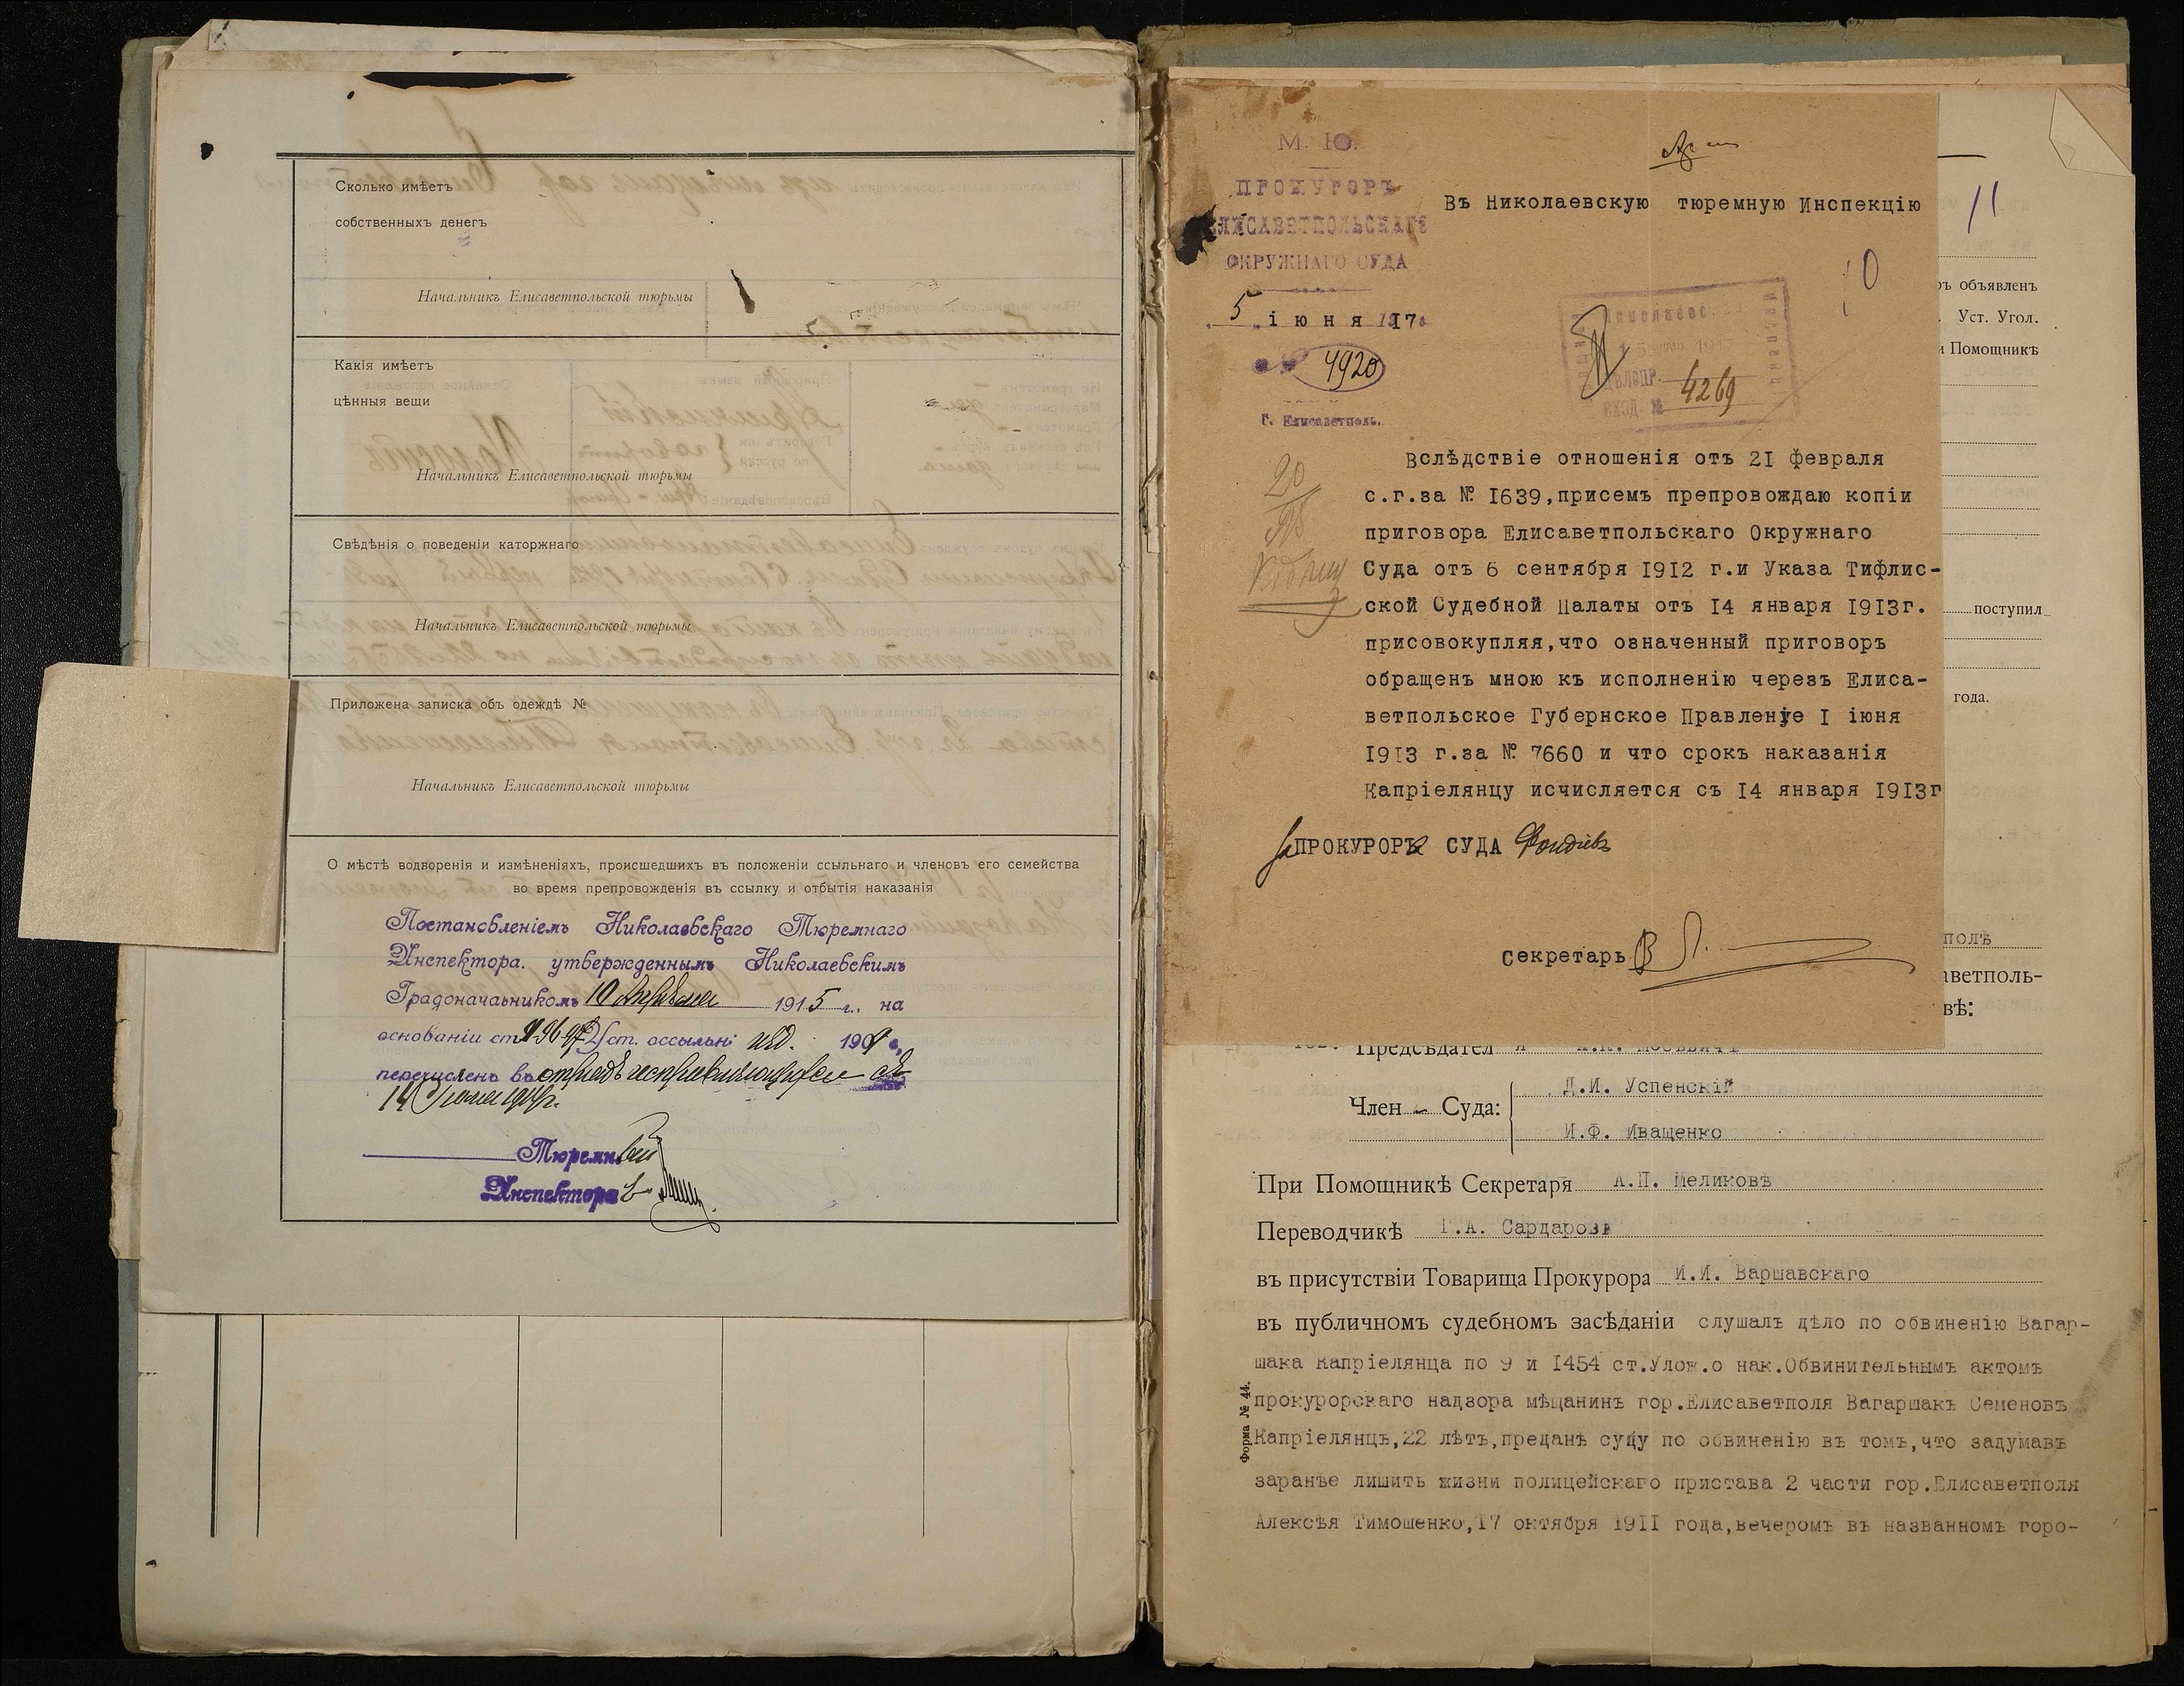 Сколько имѣетъ
собственныхъ денегъ
Начальникъ Елисаветпольской тюрьмы
Какія имѣетъ
цѣнныя вещи
Начальникъ Елисаветпольской тюрьмы
Свѣдѣнія о поведеніи каторжнаго
Начальникъ Елисаветпольской тюрьмы
Приложена записка объ одеждѣ №
Начальникъ Елисаветпольской тюрьмы
О мѣстѣ водворенія и измѣненіяхъ, происшедшихъ въ положеніи ссыльнаго и членовъ его семейства
во время препровожденія въ ссылку и отбытія наказанія
Постановленіемъ Николаевскаго Тюремнаго
Инспектора. утвержденнымъ Николаевскимъ
Градоначаьникомъ 10 Апрѣля 1915 г., на
основаніи ст. уст. оссыльн. изд. 1909 г.
перечисленъ въ отрядъ исправляющихся съ
Тюремн
Инспектора
М. Ю.
ПРОКУРОРЪ
ЕЛИСАВЕТПОЛЬСКАГО
ОКРУЖНАГО СУДА
5 іюня 17
4920
Г. Елисаветполь.
Въ Николаевскую тюремную Инспекцію
11
10
ДѢЛОПР.
ВХОД. № 4269
Вслѣдствіе отношенія отъ 2I февраля
с.г.за № I639,присемъ препровождаю копіи
приговора Елисаветпольскаго Окружнаго
Суда отъ 6 сентября I9I2 г.и Указа Тифлис-
ской Судебной Палаты отъ I4 января I9I3г.
присовокупляя,что означенный приговоръ
обращенъ мною къ исполненію черезъ Елиса-
ветпольское Губернское Правленіе I іюня
I9I3 г.за № 7660 и что срокъ наказанія
Капріелянцу исчисляется съ I4 января I9I3г
за ПРОКУРОРА СУДА
Секретарь
ъ объявленъ
Уст. Угол.
и Помощникѣ
поступил
года.
поль
аветполь-
вѣ:
Предсѣдател я
Член Суда:
Д.И. Успенскій
И.Ф. Иващенко
При Помощникѣ Секретаря А.П. Меликовѣ
Переводчикѣ Г.А. Сардаровѣ
въ присутствіи Товарища Прокурора И.И. Варшавскаго
въ публичномъ судебномъ засѣданіи слушалъ дѣло по обвиненію Вагар-
шака Капріелянца по 9 и I454 ст.Улож.о нак.Обвинительнымъ актомъ
прокурорскаго надзора мѣщанинъ гор.Елисаветполя Вагаршакъ Семеновъ
Капріелянцъ,22 лѣтъ,преданъ суду по обвиненію въ томъ,что задумавъ
заранѣе лишить жизни полицейскаго пристава 2 части гор.Елисаветполя
Алексѣя Тимошенко,I7 октября I9II года,вечеромъ въ названномъ горо-
Форма № 44.